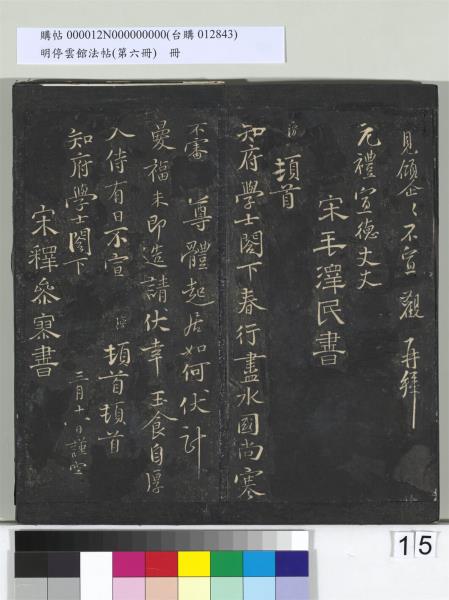 購帖 000012N000000000(台購 012843)
明停雲館法帖(第六冊) 冊
見傾企〻不宣 觀 再拜
元禮宣德丈丈
宋毛澤民書
滂 頓首
知府學士閣下春行盡水國尚寒
不審 尊體起居如何伏計
曼福未即造請伏幸 玉食自厚
入侍有日不宣 滂 頓首頓首
知府學士閣下
三月十八日謹空
宋釋參寥書
15